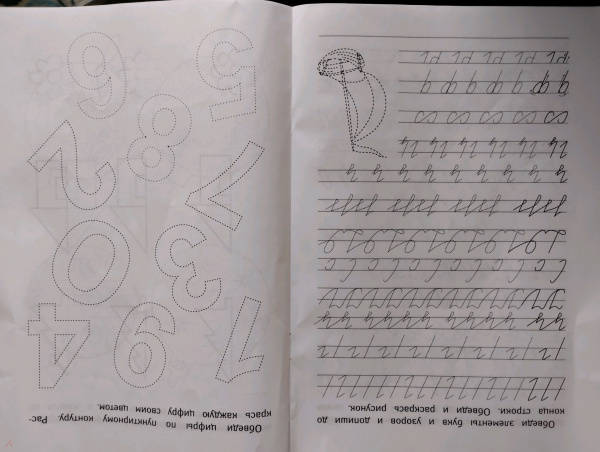 Обведи элементы букв и узоров и допиши до
конца строки. Обведи и раскрась рисунок.
Обведи цифры по пунктирному контуру. Рас-
крась каждую цифру своим цветом.
1 9 4
3 0
7 2
8
5 6